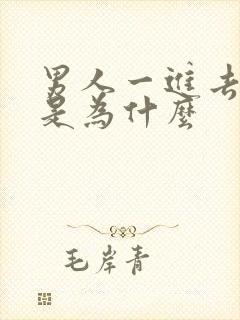 男人一進去
是為什麼
毛岸青